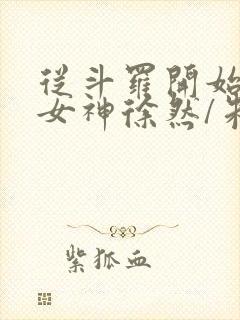 從斗羅開始
女神徐然/朱
紫狐血